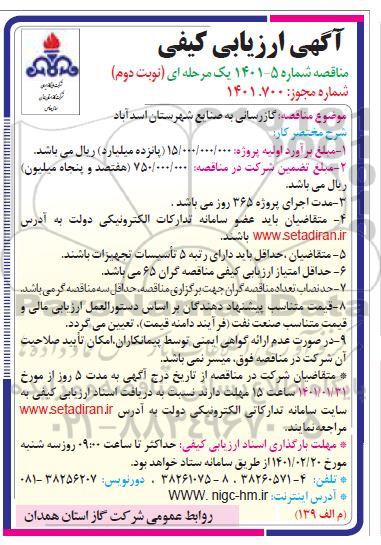 آگهی ارزیابی کیفی
مناقصه شماره ۵-۱۴۰۱ یک مرحله ای (نوبت دوم)
شماره مجوز: ۱۴۰۱.۷۰۰
موضوع مناقصه: گازرسانی به صنایع شهرستان اسدآباد
شرح مختصر کار:
۱-مبلغ برآورد اولیه پروژه: ۱۵/۰۰۰/۰۰۰/۰۰۰ (پانزده میلیارد) ریال می باشد.
۲-مبلغ تضمین شرکت در مناقصه: ۷۵۰/۰۰۰/۰۰۰ (هفتصد و پنجاه میلیون)
ریال می باشد.
۳-مدت اجرای پروژه ۳۶۵ روز می باشد .
۴- متقاضیان باید عضو سامانه تدارکات الکترونیکی دولت به آدرس
www.setadiran.ir باشند.
۵-متقاضیان ،حداقل باید دارای رتبه ۵ تأسیسات تجهیزات باشند.
۶- حداقل امتیاز ارزیابی کیفی مناقصه گران ۶۵ می باشد.
۷-حدنصاب تعداد مناقصه گران جهت برگزاری مناقصه، حداقل سه مناقصه گر می باشد.
۸-قیمت متناسب پیشنهاد دهندگان بر اساس دستورالعمل ارزیابی مالی و
قیمت متناسب صنعت نفت (فرآیند دامنه قیمت)، تعیین می گردد.
۹-در صورت عدم ارائه گواهی ایمنی توسط پیمانکاران،امکان تأیید صلاحیت
آن شرکت در مناقصه فوق، میسر نمی باشد.
* متقاضیان شرکت در مناقصه از تاریخ درج آگهی به مدت ۵ روز از مورخ
۱۴۰۱/۰۱/۳۱ ساعت ۱۵ مهلت دارند نسبت به دریافت اسناد ارزیابی کیفی به
سایت سامانه تدارکاتی الکترونیکی دولت به آدرس www.setadiran.ir
مراجعه نمایند.
* مهلت بارگذاری اسناد ارزیابی کیفی: حداکثر تا ساعت ۰۹:۰۰ روز سه شنبه
مورخ ۱۴۰۱/۰۲/۲۰ از طریق سامانه ستاد خواهد بود.
* تلفن: ۴-۳۸۲۶۰۵۷۱ ، ۸-۳۸۲۶۱۰۷۵ ، دورنویس: ۳۸۲۵۶۲۰۷-۰۸۱
* آدرس اینترنت: WWW. nigc-hm.ir
(م الف ۱۳۹)
روابط عمومی شرکت گاز استان همدان